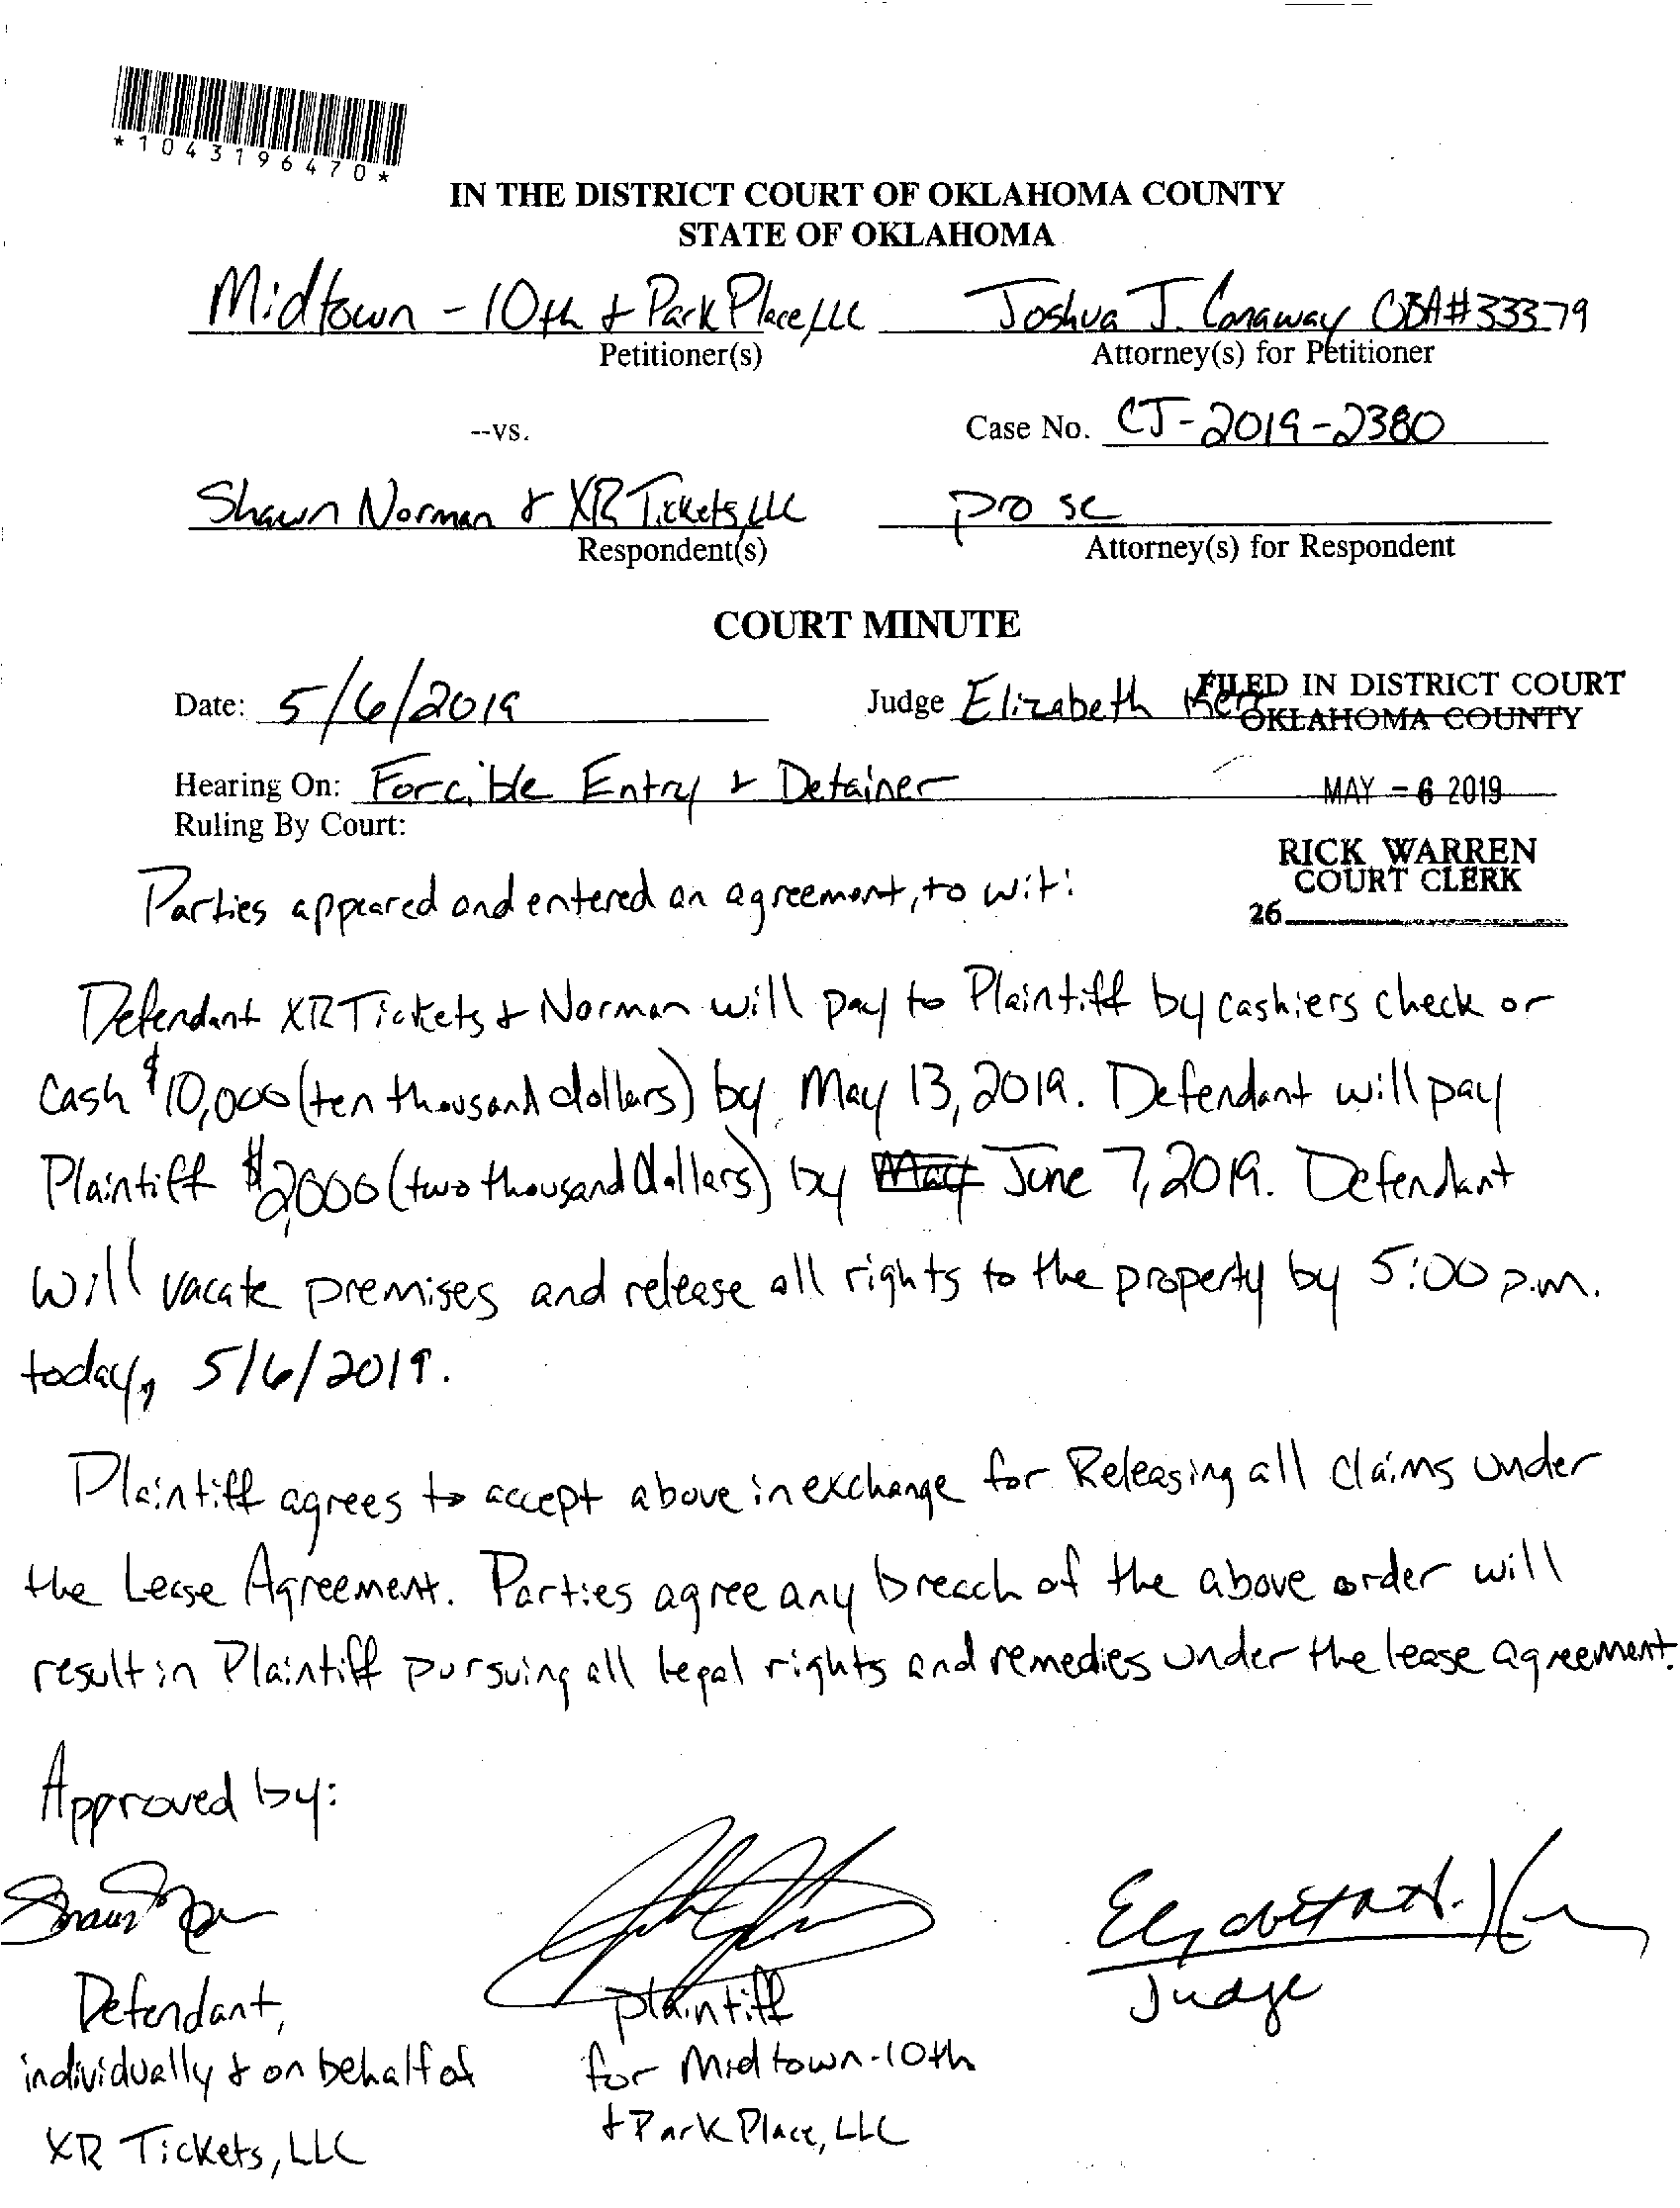 *1043196470*
IN THE DISTRICT COURT OF OKLAHOMA COUNTY
STATE OF OKLAHOMA
Midtown - 10th & Park Place, LLC Joshua J. Conaway OBA#33379
Petitioner(s) Attorney(s) for Petitioner
--vs. Case No. CJ-2019-2380
Shawn Norman & XR Tickets, LLC pro se
Respondent(s) Attorney(s) for Respondent
COURT MINUTE
Date: 5/6/2019 Judge Elizabeth Kerr
FILED IN DISTRICT COURT
OKLAHOMA COUNTY
Hearing On: Forcible Entry & Detainer
MAY - 6 2019
Ruling By Court:
RICK WARREN
COURT CLERK
26
Parties appeared and entered an agreement, to wit:
Defendant XR Tickets & Norman will pay to Plaintiff by cashiers check or
cash $10,000 (ten thousand dollars) by May 13, 2019. Defendant will pay
Plaintiff $2,000 (two thousand dollars) by May June 7, 2019. Defendant
will vacate premises and release all rights to the property by 5:00 p.m.
today, 5/6/2019.
Plaintiff agrees to accept above in exchange for Releasing all claims under
the Lease Agreement. Parties agree any breach of the above order will
result in Plaintiff pursuing all legal rights and remedies under the lease agreement.
Approved by:
Elizabeth H. Kerr
Defendant, plaintiff Judge
individually & on behalf of for Midtown-10th
XR Tickets, LLC & Park Place, LLC